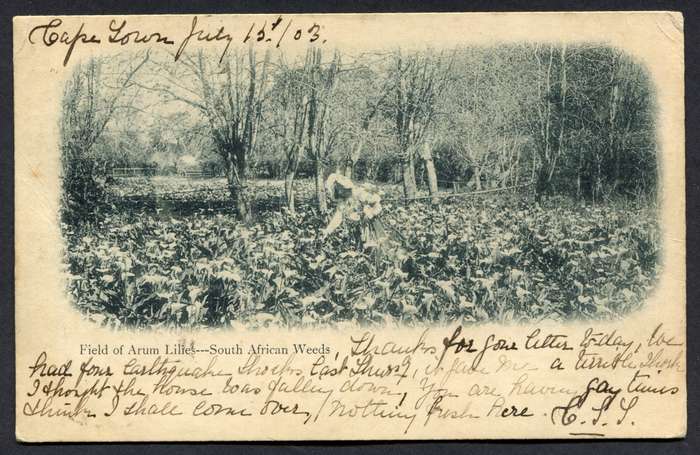 Cape Town July 15t/03.
Field of Arum Lilies---South African Weeds
Thanks for your letter today, We
had four Earthquake shocks last Thurs?, it gave me a terrible Shock
I thought the House was falling down, You are having gay times
think I shall come over, Nothing fresh Here. C.S.S.